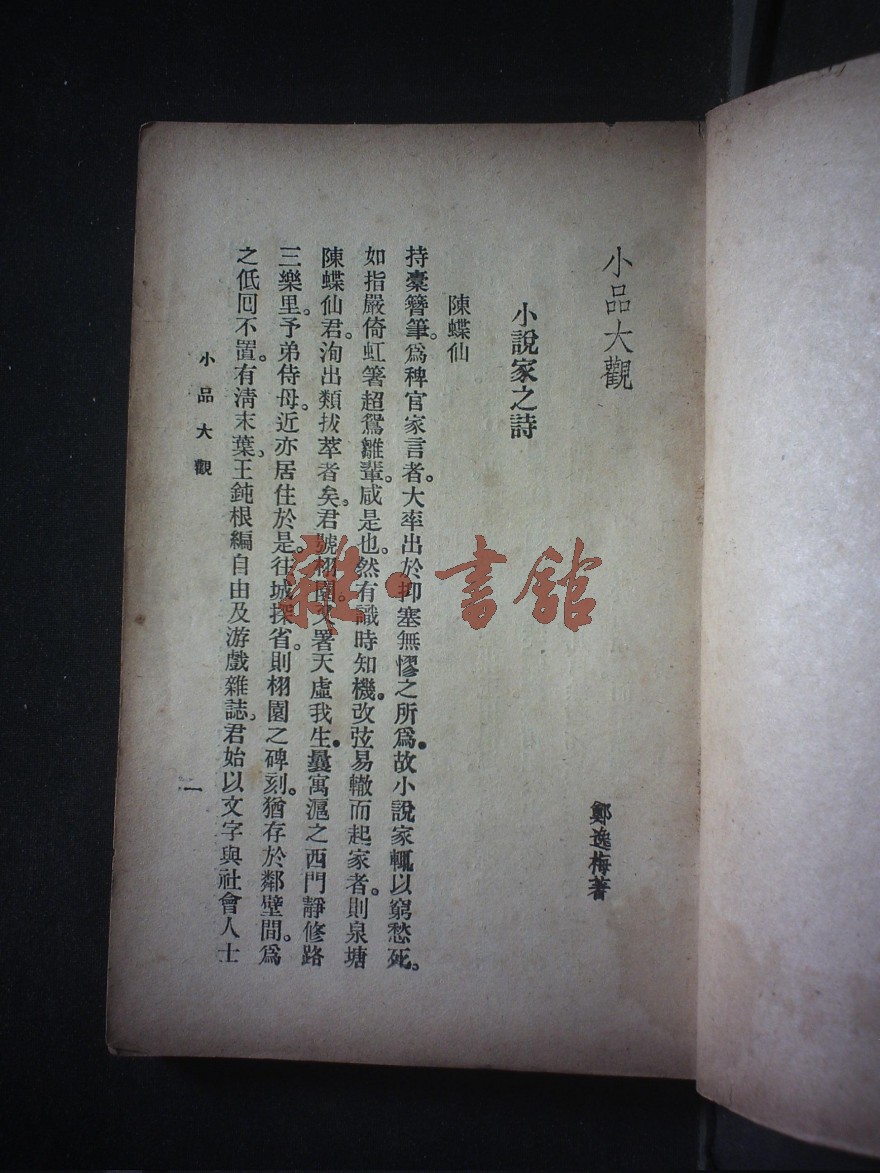 小品大觀
鄭逸梅著
小說家之詩
陳蝶仙
持橐簪筆。爲稗官家言者。大率出於抑塞無憀之所爲。故小說家輒以窮愁死。
如指嚴倚虹箸超鴛雛輩。咸是也。然有識時知機。改弦易轍而起家者。則泉塘
陳蝶仙君。洵出類拔萃者矣。君號栩園。又署天虛我生。曩寓滬之西門靜修路
三樂里。予弟侍母。近亦居住於是。往城探省。則栩園之碑刻。猶存於鄰壁間。爲
之低回不置。有淸末葉。王鈍根編自由及游戲雜誌。君始以文字與社會人士
小品大觀
一
雜·書館